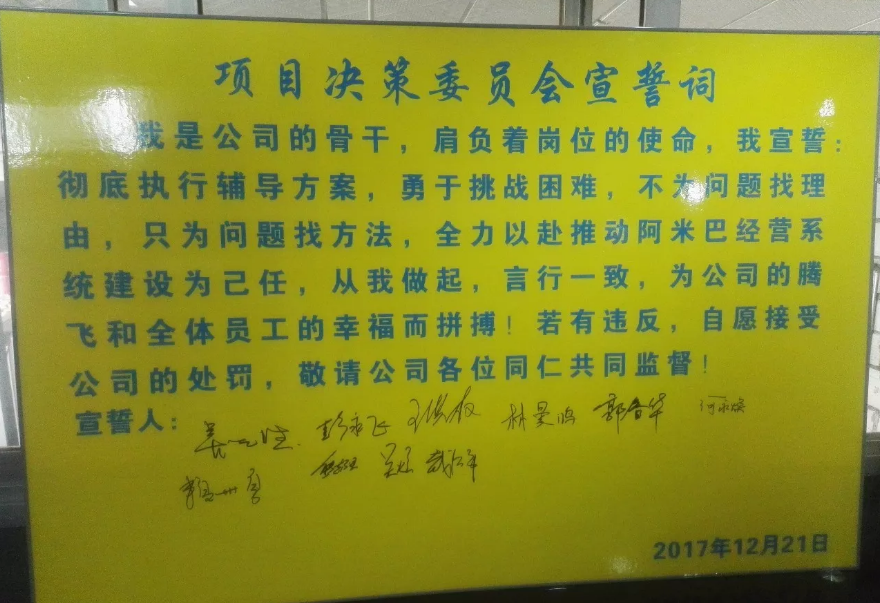 项目决策委员会宣誓词
我是公司的骨干，肩负着岗位的使命，我宣誓：
彻底执行辅导方案，勇于挑战困难，不为问题找理
由，只为问题找方法，全力以赴推动阿米巴经营系
统建设为己任，从我做起，言行一致，为公司的腾
飞和全体员工的幸福而拼搏！若有违反，自愿接受
公司的处罚，敬请公司各位同仁共同监督！
宣誓人：
2017年12月21日